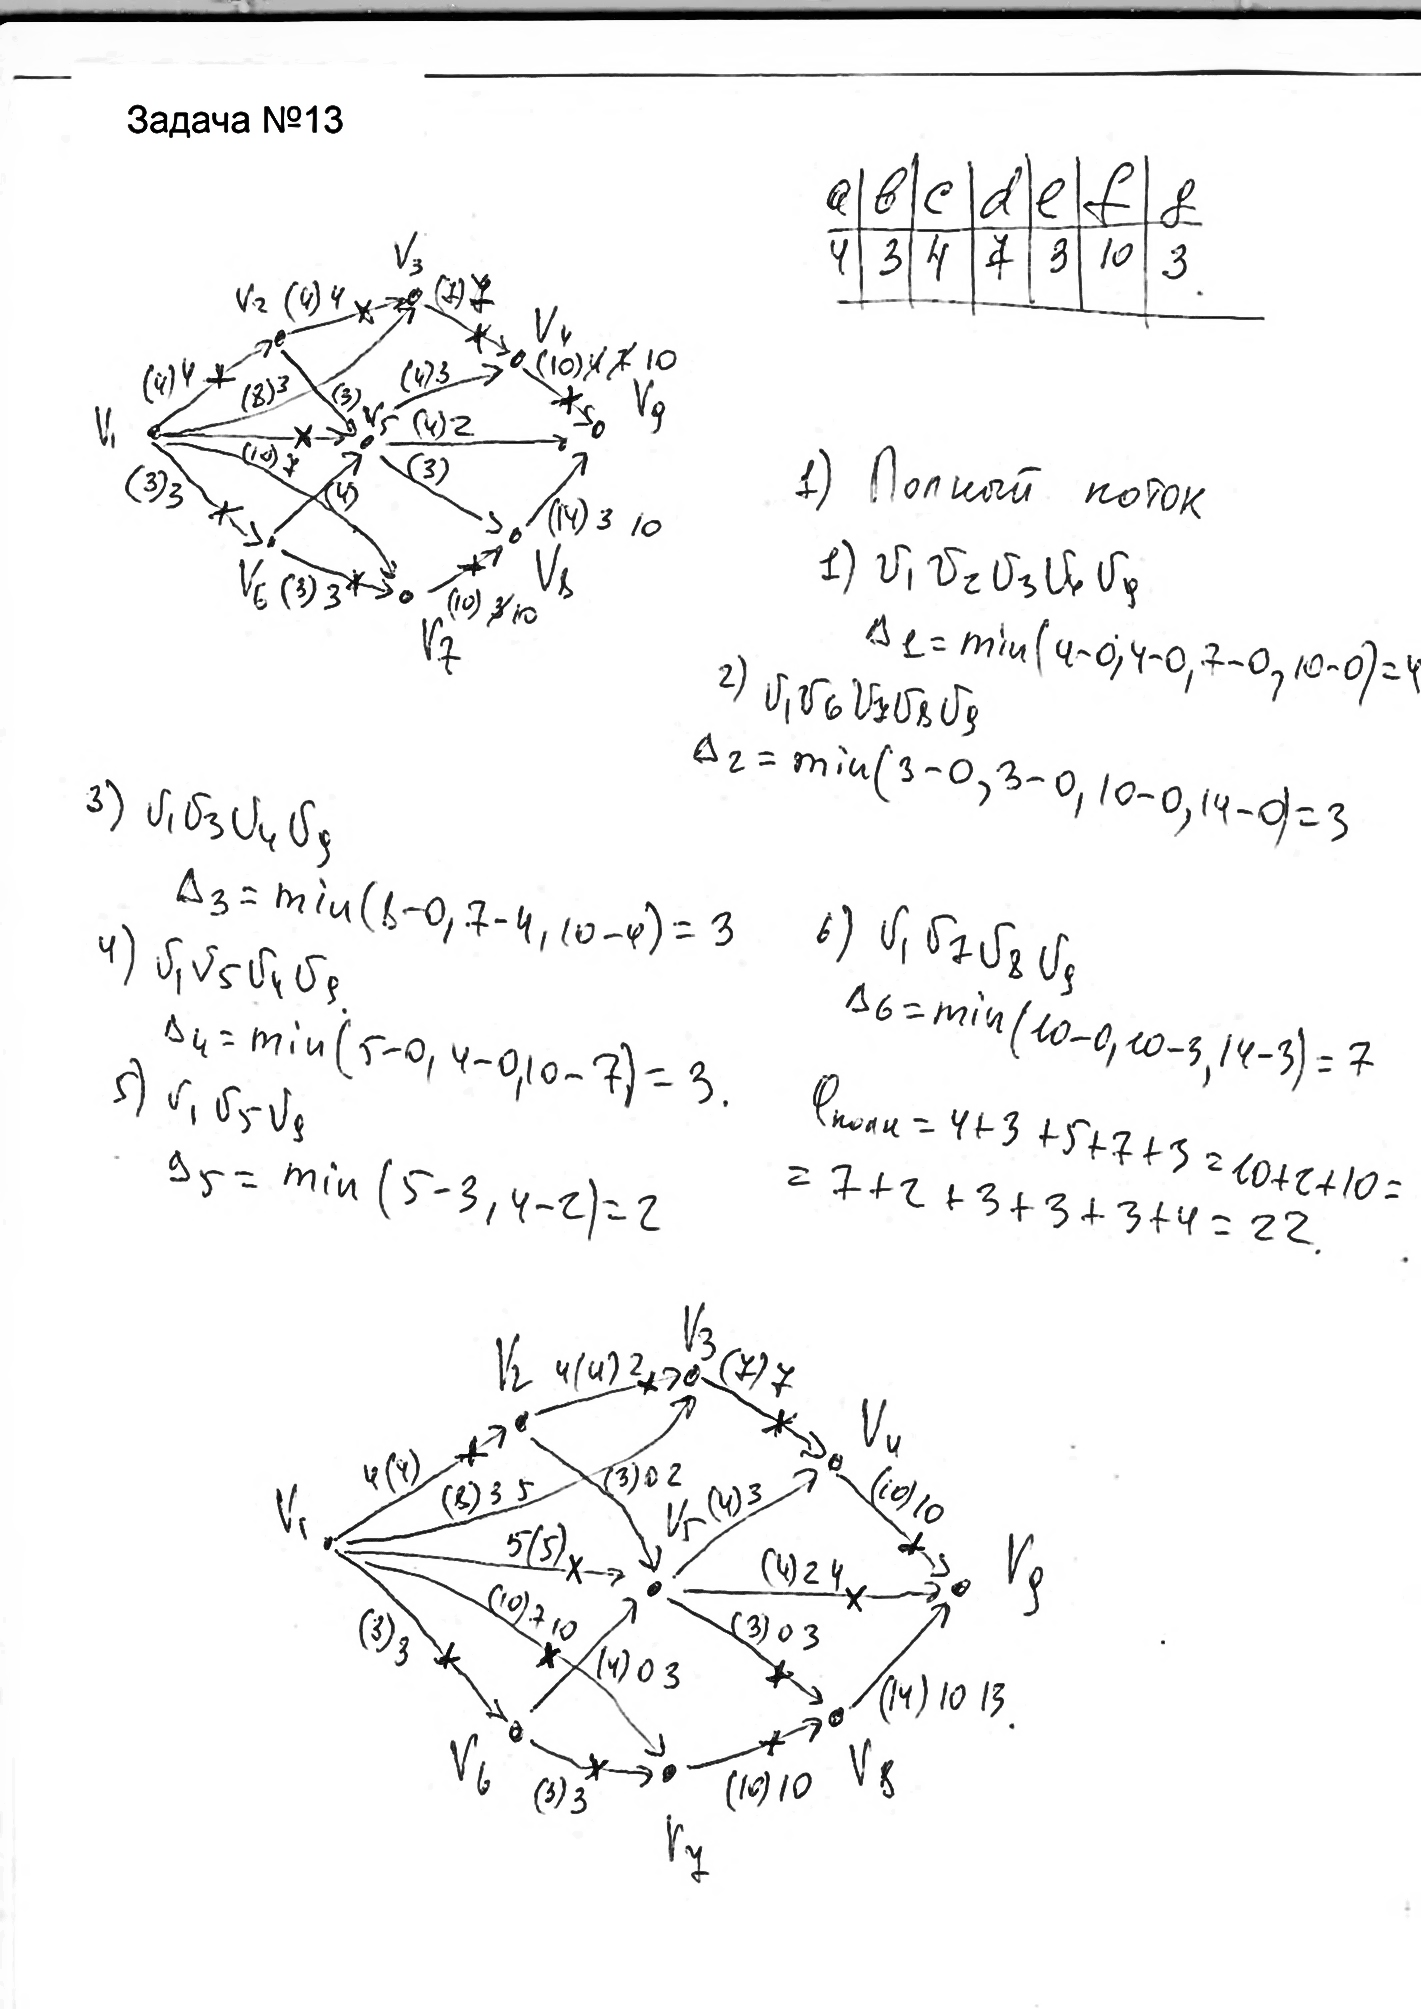 Задача №13
a b c d e f g
4 3 4 7 3 10 3
V3
V2 (4) 4 (7) 7
V4
(4) 4 (8) 3 (3) (4) 3 (10) 4 7 10
V9
V1 V5 (4) 2
(10) 7 (3)
(3) 3 (4) (14) 3 10
V6 (3) 3 V8
(10) 3 10
V7
1) Полный поток
1) V1 V2 V3 V4 V9
Δ1 = min(4-0, 4-0, 7-0, 10-0) = 4
2) V1 V6 V7 V8 V9
Δ2 = min(3-0, 3-0, 10-0, 14-0) = 3
3) V1 V3 V4 V9
Δ3 = min(8-0, 7-4, 10-4) = 3
4) V1 V5 V4 V9
Δ4 = min(5-0, 4-0, 10-7) = 3.
5) V1 V5 V9
Δ5 = min (5-3, 4-2) = 2
6) V1 V7 V8 V9
Δ6 = min(10-0, 10-3, 14-3) = 7
φполн = 4+3+5+7+3 = 10+2+10 =
= 7+2+3+3+3+4 = 22.
V3
V2 4(4) 2 (7) 7
V4
4(4) (8) 3 5 (3) 0 2 (10) 10
V5 (4) 3
V1 5(5) (4) 2 4 V9
(10) 7 10 (3) 0 3
(3) 3 (4) 0 3 (14) 10 13.
V6 V8
(3) 3 (10) 10
V7